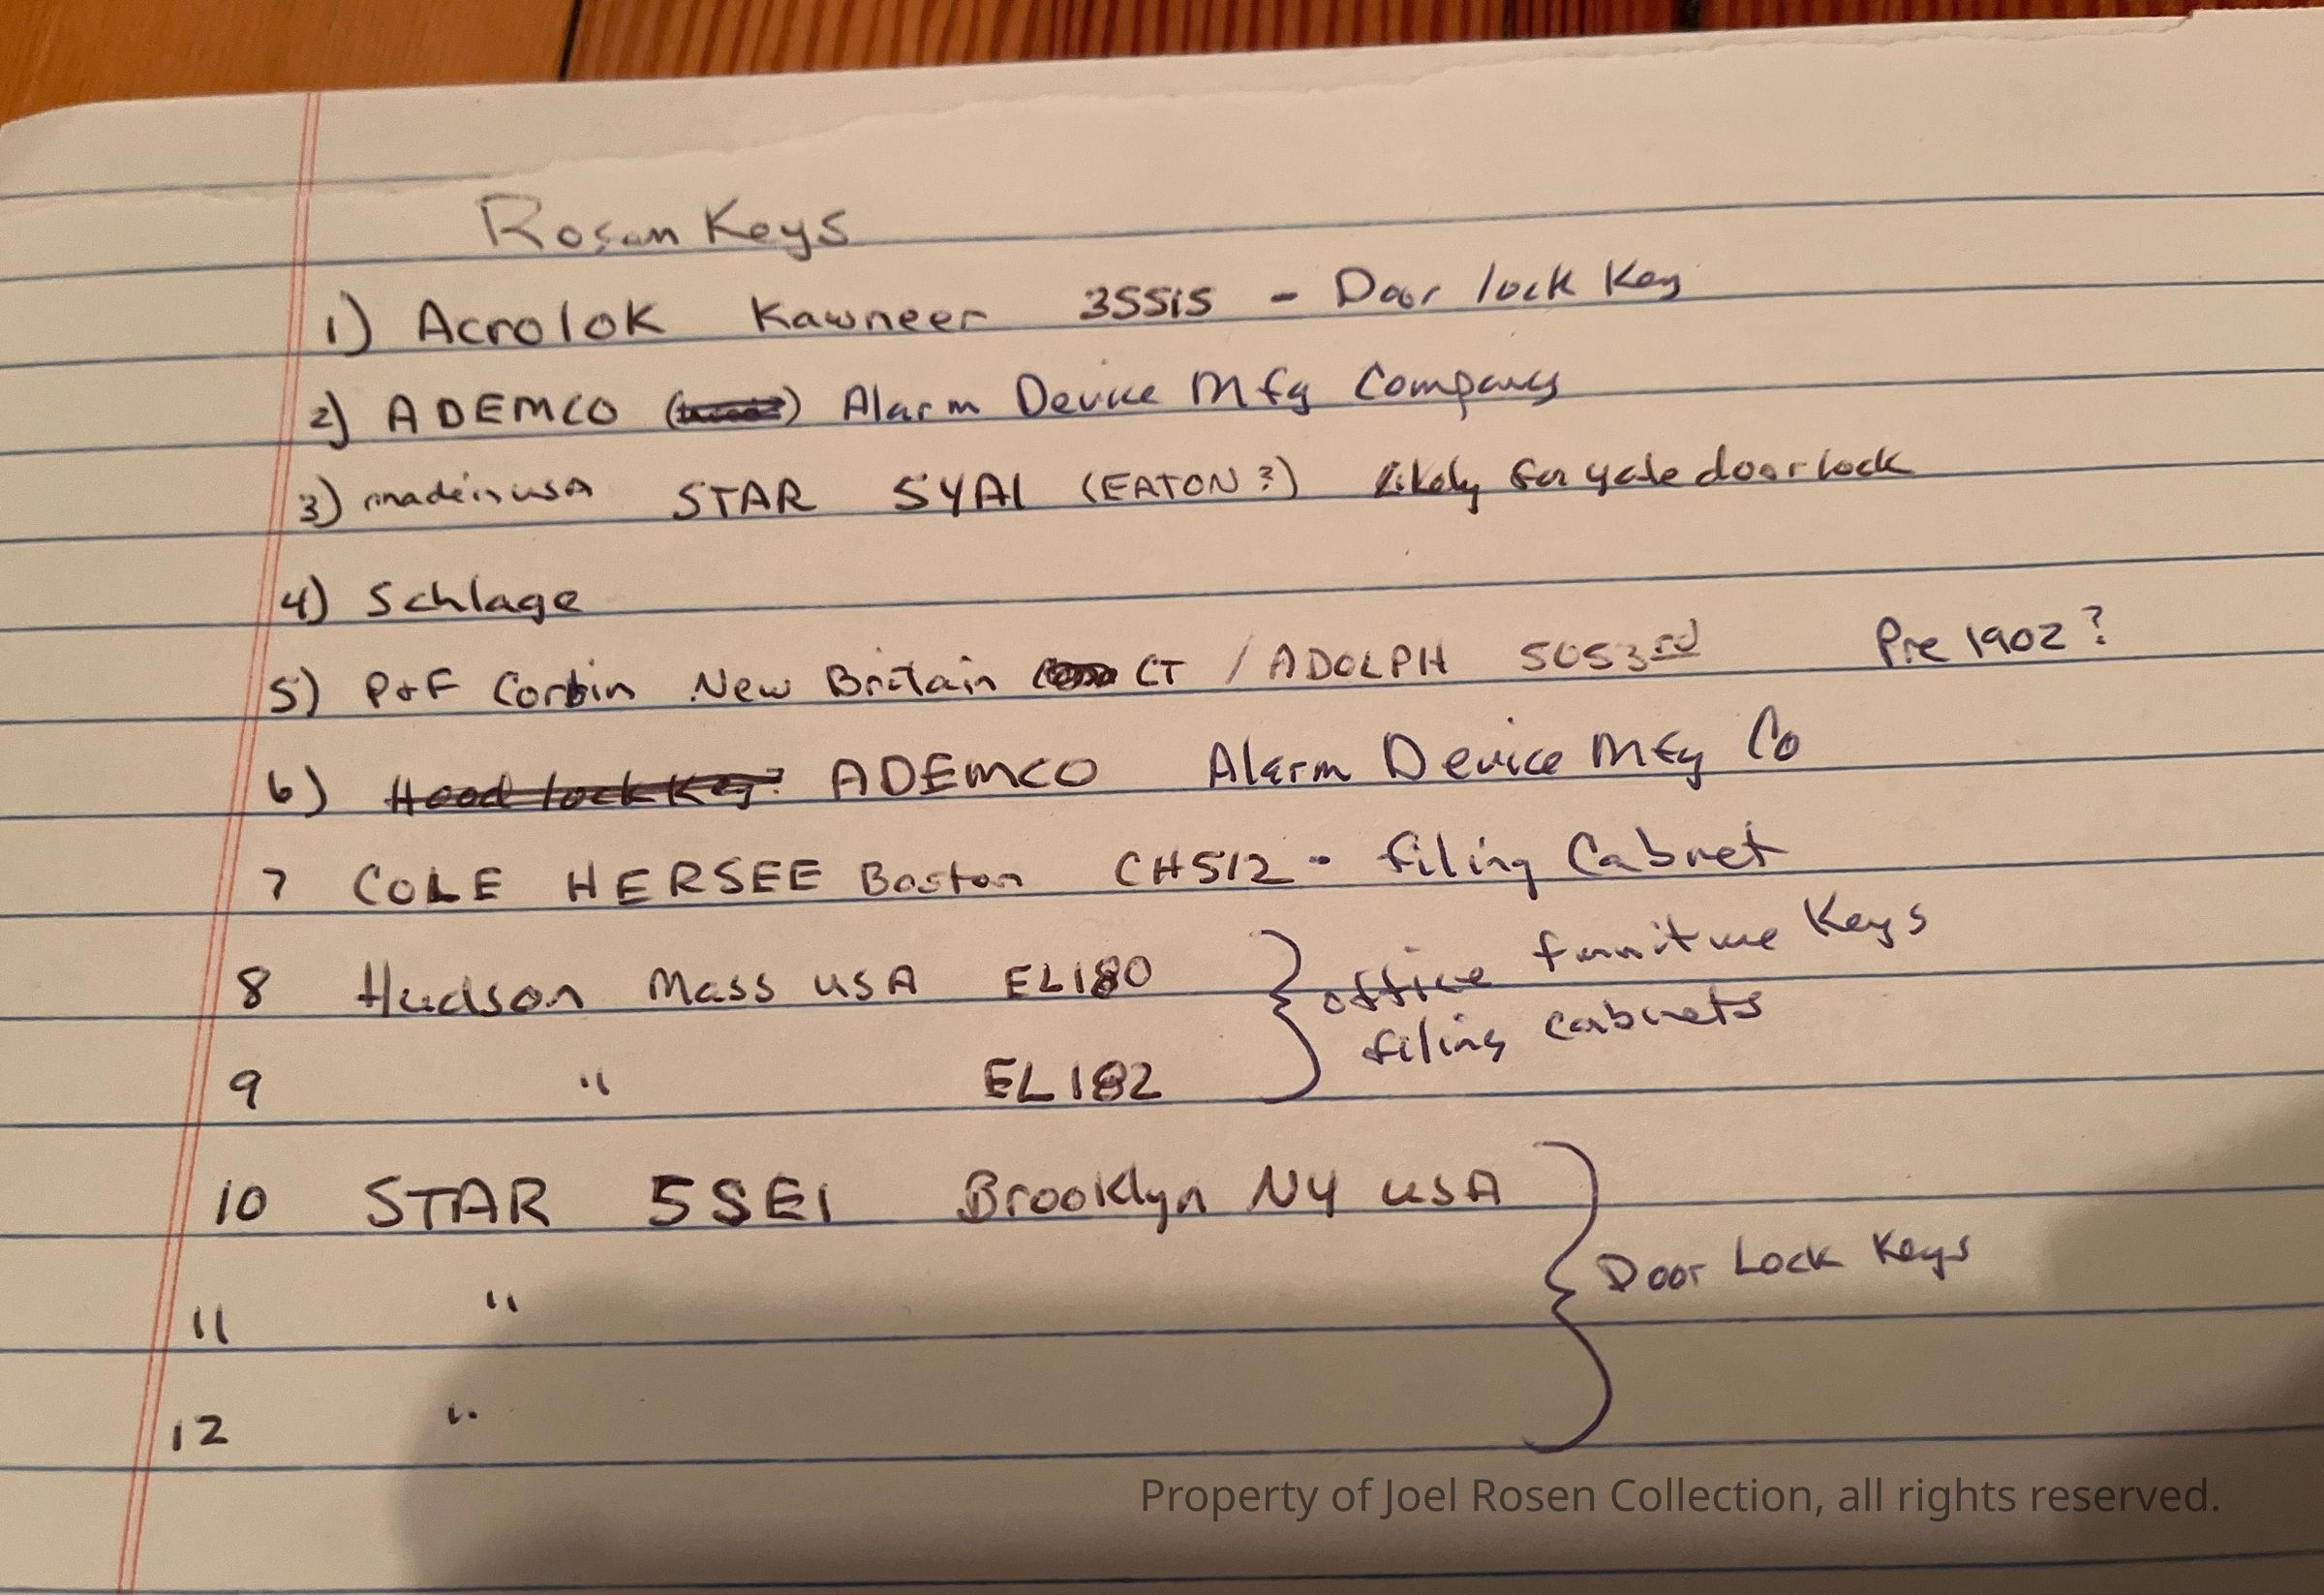 Rosen Keys
1) Acrolok Kawneer 35515 - Door lock Key
2) ADEMCO ( ) Alarm Device Mfg Company
3) made in usA STAR 5YA1 (EATON?) likely for yale door lock
4) Schlage
5) P+F Corbin New Britain CT / ADOLPH 5053rd Pre 1902?
6) Hood lock Key? ADEMCO Alarm Device Mfg Co
7 COLE HERSEE Boston CH512 - filing Cabnet
8 Hudson Mass USA EL180 } office furniture Keys
filing cabinets
9 " EL182
10 STAR 5SE1 Brooklyn NY USA
} Door Lock Keys
11 "
12 "
Property of Joel Rosen Collection, all rights reserved.